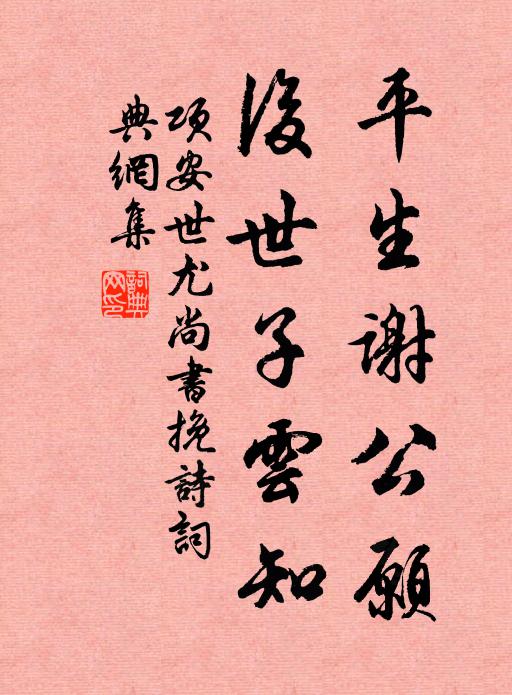 平生謝公願
後世子雲知
項安世尤尚書挽詩詞
典網集
詞典網印